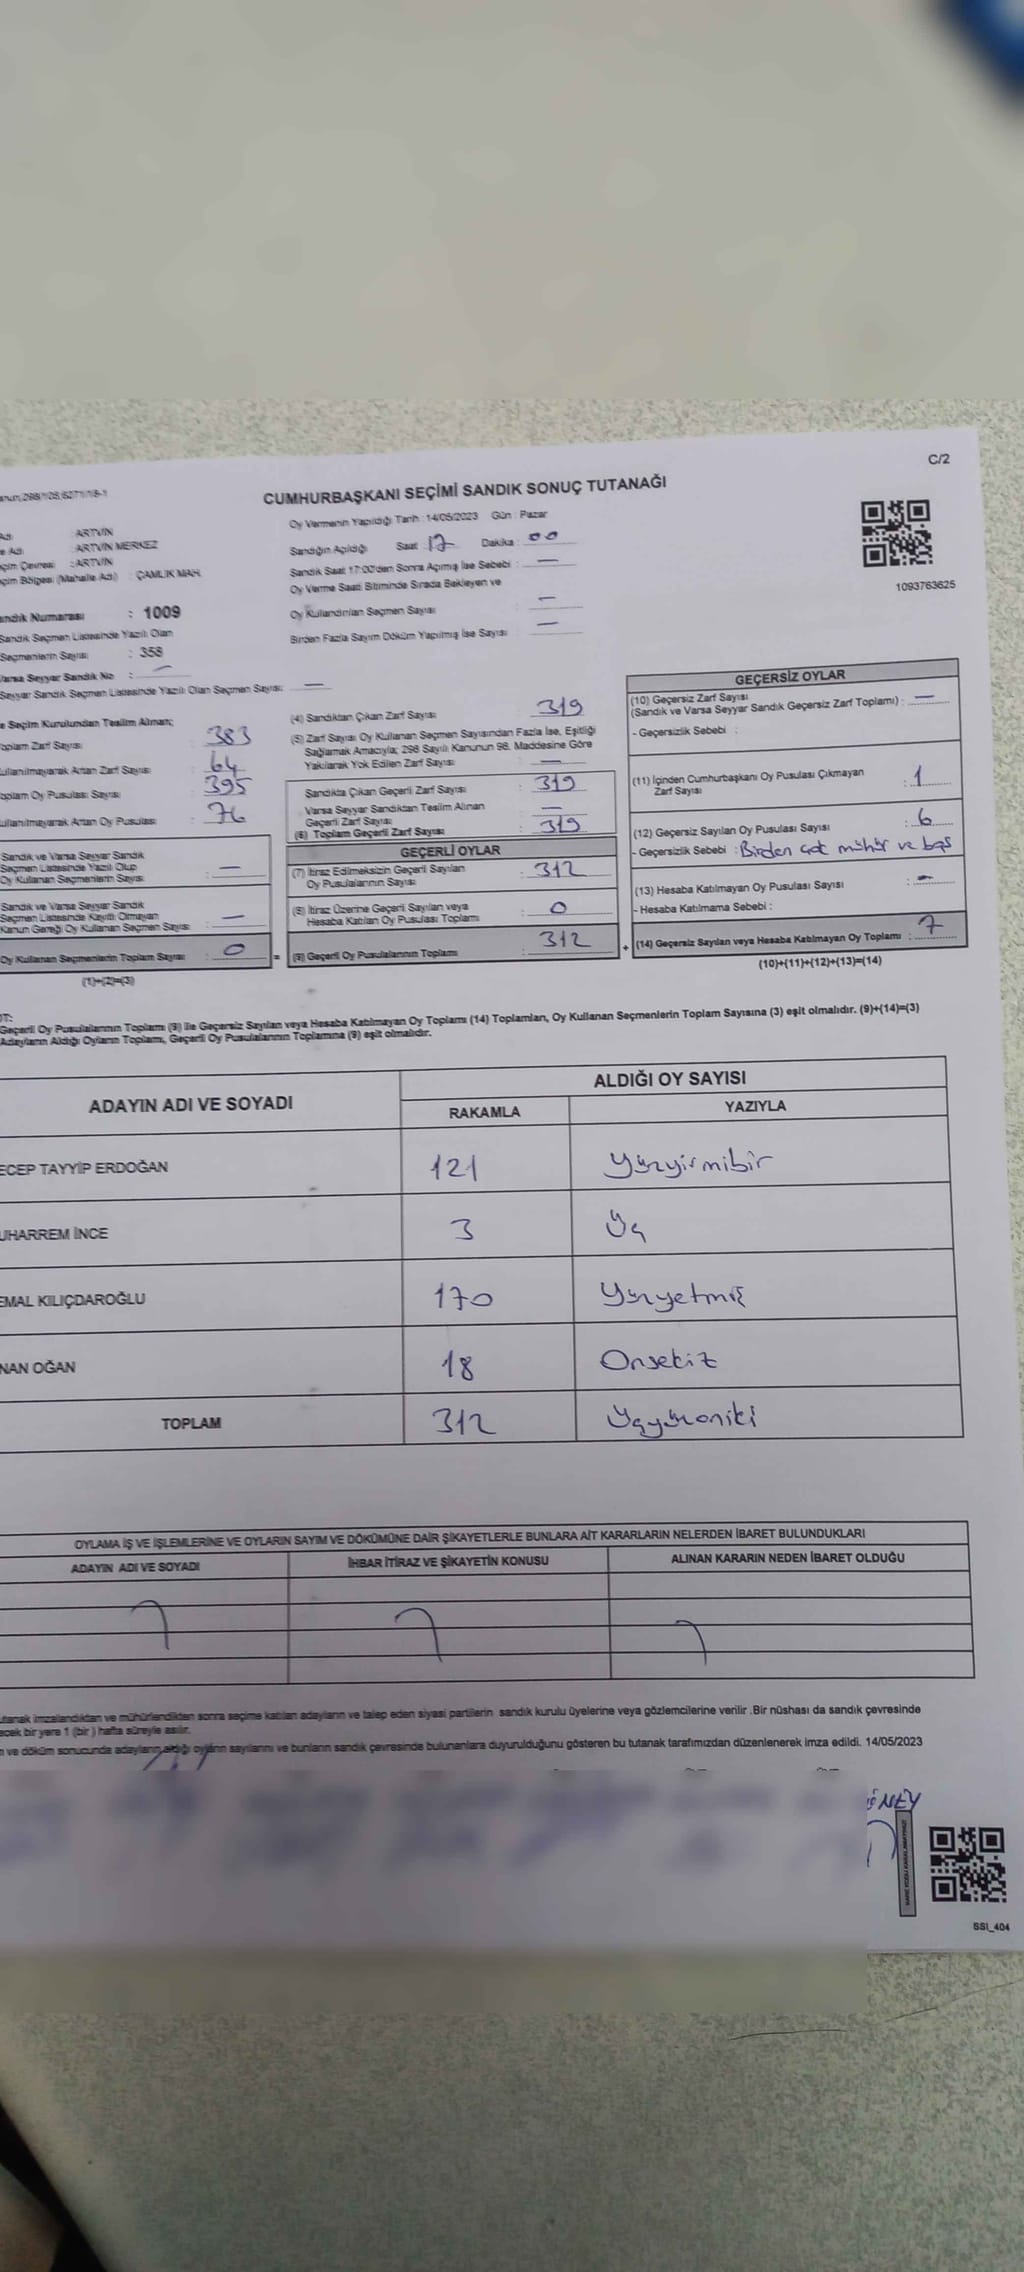 C/2
CUMHURBAŞKANI SEÇİMİ SANDIK SONUÇ TUTANAĞI
Oy Vermenin Yapıldığı Tarih : 14/05/2023 Gün : Pazar
: ARTVİN
: ARTVİN MERKEZ
: ARTVİN
(Mahalle Adı) : ÇAMLIK MAH.
Sandığın Açıldığı Saat : 17 Dakika : 00
Sandık Saat 17:00'den Sonra Açılmış İse Sebebi : —
Oy Verme Saati Bitiminde Sırada Bekleyen ve
Oy Kullandırılan Seçmen Sayısı —
Birden Fazla Sayım Döküm Yapılmış İse Sayısı : —
1093763625
Numarası : 1009
Sandık Seçmen Listesinde Yazılı Olan
Seçmenlerin Sayısı : 358
Varsa Seyyar Sandık No : —
Seyyar Sandık Seçmen Listesinde Yazılı Olan Seçmen Sayısı: —
Seçim Kurulundan Teslim Alınan;
Zarf Sayısı : 383
Artan Zarf Sayısı : 64
Oy Pusulası Sayısı : 395
Artan Oy Pusulası : 76
Sandık ve Varsa Seyyar Sandık
Seçmen Listesinde Yazılı Olup
Oy Kullanan Seçmenlerin Sayısı : —
Sandık ve Varsa Seyyar Sandık
Seçmen Listesinde Kayıtlı Olmayan
Kanun Gereği Oy Kullanan Seçmen Sayısı : —
Oy Kullanan Seçmenlerin Toplam Sayısı : 0 =
(1)+(2)=(3)
(4) Sandıktan Çıkan Zarf Sayısı : 319
(5) Zarf Sayısı Oy Kullanan Seçmen Sayısından Fazla İse, Eşitliği
Sağlamak Amacıyla; 298 Sayılı Kanunun 98. Maddesine Göre
Yakılarak Yok Edilen Zarf Sayısı : —
Sandıkta Çıkan Geçerli Zarf Sayısı : 319
Varsa Seyyar Sandıktan Teslim Alınan
Geçerli Zarf Sayısı : —
(6) Toplam Geçerli Zarf Sayısı : 319
GEÇERLİ OYLAR
(7) İtiraz Edilmeksizin Geçerli Sayılan
Oy Pusulalarının Sayısı : 312
(8) İtiraz Üzerine Geçerli Sayılan veya
Hesaba Katılan Oy Pusulası Toplamı : 0
(9) Geçerli Oy Pusulalarının Toplamı : 312 +
GEÇERSİZ OYLAR
(10) Geçersiz Zarf Sayısı
(Sandık ve Varsa Seyyar Sandık Geçersiz Zarf Toplamı) : —
- Geçersizlik Sebebi :
(11) İçinden Cumhurbaşkanı Oy Pusulası Çıkmayan
Zarf Sayısı : 1
(12) Geçersiz Sayılan Oy Pusulası Sayısı : 6
- Geçersizlik Sebebi : Birden çok mühür ve boş
(13) Hesaba Katılmayan Oy Pusulası Sayısı : —
- Hesaba Katılmama Sebebi :
(14) Geçersiz Sayılan veya Hesaba Katılmayan Oy Toplamı : 7
(10)+(11)+(12)+(13)=(14)
Geçerli Oy Pusulalarının Toplamı (9) ile Geçersiz Sayılan veya Hesaba Katılmayan Oy Toplamı (14) Toplamları, Oy Kullanan Seçmenlerin Toplam Sayısına (3) eşit olmalıdır. (9)+(14)=(3)
Adayların Aldığı Oyların Toplamı, Geçerli Oy Pusulalarının Toplamına (9) eşit olmalıdır.
ADAYIN ADI VE SOYADI ALDIĞI OY SAYISI
RAKAMLA YAZIYLA
ECEP TAYYİP ERDOĞAN 121 Yüzyirmibir
UHARREM İNCE 3 Üç
EMAL KILIÇDAROĞLU 170 Yüzyetmiş
NAN OĞAN 18 Onsekiz
TOPLAM 312 Üçyüzoniki
OYLAMA İŞ VE İŞLEMLERİNE VE OYLARIN SAYIM VE DÖKÜMÜNE DAİR ŞİKAYETLERLE BUNLARA AİT KARARLARIN NELERDEN İBARET BULUNDUKLARI
ADAYIN ADI VE SOYADI İHBAR İTİRAZ VE ŞİKAYETİN KONUSU ALINAN KARARIN NEDEN İBARET OLDUĞU
utanak imzalandıktan ve mühürlendikten sonra seçime katılan adayların ve talep eden siyasi partilerin sandık kurulu üyelerine veya gözlemcilerine verilir .Bir nüshası da sandık çevresinde
ecek bir yere 1 (bir ) hafta süreyle asılır.
ve döküm sonucunda adayların aldığı oyların sayılarını ve bunların sandık çevresinde bulunanlara duyurulduğunu gösteren bu tutanak tarafımızdan düzenlenerek imza edildi. 14/05/2023
SSI_404